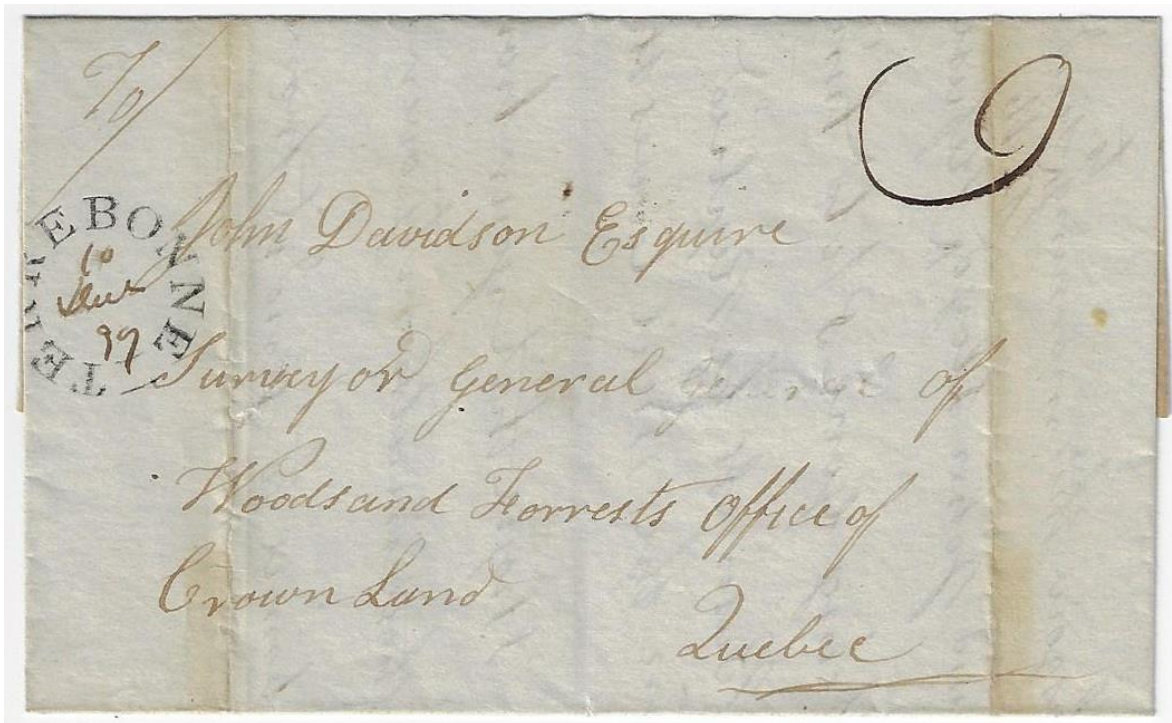 To/
9
TERREBONNE
10
39
John Davidson Esquire
Surveyor General General of
Woods and Forrests Office of
Crown Land
Quebec